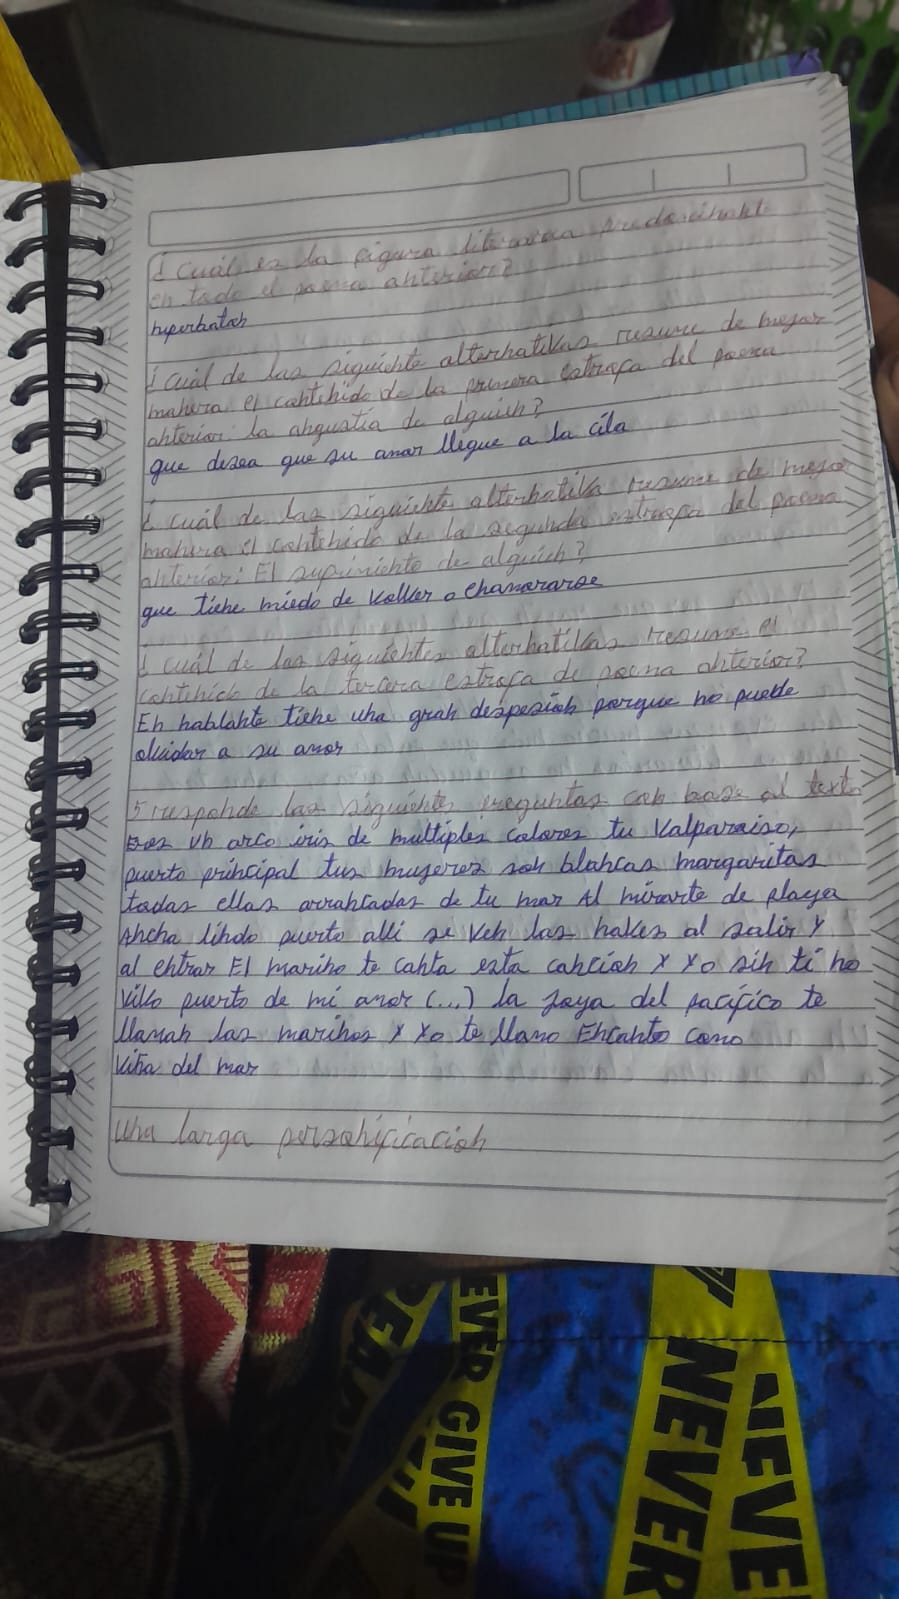 ¿Cuál es la figura literaria predominante
en todo el poema anterior?
hiperbaton
¿cuál de las siguiente alternativas resume de mejor
manera el contenido de la primera estrofa del poema
anterior: la angustia de alguien?
que desea que su amor llegue a la cita
¿cuál de las siguiente alternativa resume de mejor
manera el contenido de la segunda estrofa del poema
anterior: El supimiento de alguien?
que tiene miedo de volver a enamorarse
¿cuál de las siguientes alternativas resume el
contenido de la tercera estrofa de poema anterior?
En hablante tiene una gran despesion porque no puede
olvidar a su amor
5 responde las siguiente preguntas con base al texto
Eres un arco iris de multiples colores tu Valparaiso,
puerto principal tus mujeres son blancas margaritas
todas ellas arrancadas de tu mar Al mirarte de playa
Ancha lindo puerto alli se ven las naves al salir y
al entrar El marino te canta esta cancion y yo sin ti no
vivo puerto de mi amor (...) la joya del pacifico te
llaman las marinos y yo te llamo Encanto como
viña del mar
una larga personificacion
EVER GIVE UP
NEVER
NEVE